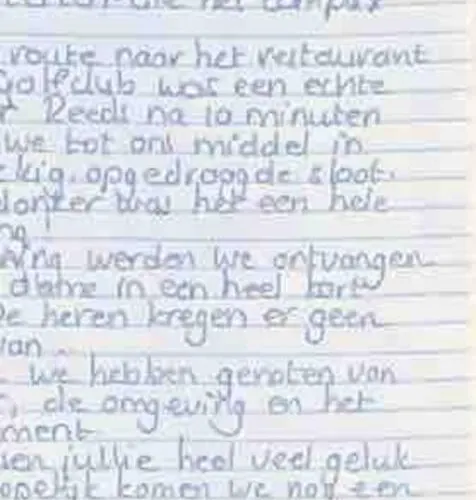 het compas
route naar het restaurant
Golfclub was een echte
Reeds na 10 minuten
we tot ons middel in
opgedroogde sloot.
was het een hele
werden we ontvangen
dame in een heel kort
De heren kregen er geen
van.
we hebben genoten van
de omgeving en het
ment
jullie heel veel geluk
komen we nog een